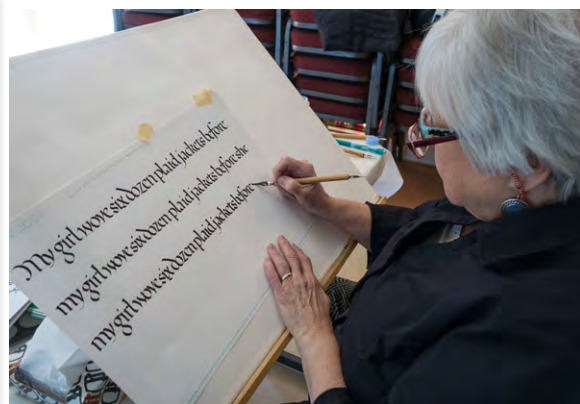 My girl wore six dozen plaid jackets before
my girl wore six dozen plaid jackets before she
my girl wore six dozen plaid jackets before